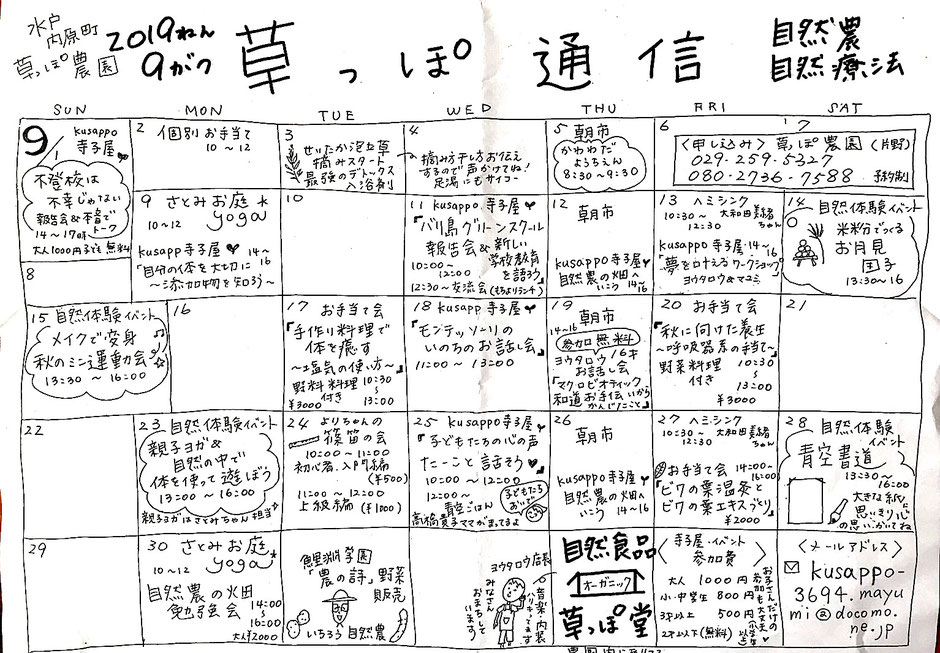 水戸
内原町
草っぽ農園
2019ねん
9がつ
草っぽ通信
自然農
自然療法
SUN MON TUE WED THU FRI SAT
9/1 kusappo
寺子屋
不登校は
不幸じゃない
報告会&本音で
14～17時 トーク
大人1000円子ども無料
2 個別お手当て
10～12
3
せいたか泡立草
摘みスタート
最強のデトックス
入浴剤
4
摘み方干し方お伝え
するので声かけてね!
足湯にもサイコー
5 朝市
かわわだ
ようちえん
8:30～9:30
6
7
<申し込み> 草っぽ農園(片野)
029-259-5327
080-2736-7588 予約制
8
9 さとみお庭
10～12 yoga
kusapp寺子屋 14～16
「自分の体を大切に
～添加物を知ろう～
10
11 kusappo 寺子屋
『バリ島グリーンスクール
報告会&新しい
学校教育
を語ろう』
10:00～
12:00
12:30～交流会(もちよりランチ)
12 朝市
kusappo寺子屋
自然農の畑へ
いこう 14～16
13 ヘミシンク
10:30～ 大和田美緒
12:30 ちゃん
kusappo寺子屋・14～16
『夢を叶えるワークショップ』
ヨウタロウ&マユミ
14 自然体験イベント
米粉でつくる
お月見
団子
13:30～16
15 自然体験イベント
メイクで変身
秋のミニ運動会
13:30～16:00
16
17 お手当て会
『手作り料理で
体を癒す
～塩気の使い方～』
野料料理 10:30
付き ～
¥3000 13:00
18 kusapp 寺子屋
『モンテッソーリの
いのちのお話し会』
11:00～13:00
19 朝市
14～16
参加無料
ヨウタロウ 16才
お話し会
『マクロビオティック
和道 お手伝いから
かんじたこと』
20 お手当て会
『秋に向けた養生
～呼吸器系の手当て～』
野菜料理 10:30
付き ～
¥3000 13:00
21
22
23 自然体験イベント
親子ヨガ&
自然の中で
体を使って遊ぼう
13:00～16:00
親子ヨガはさとみちゃん担当
24 よりちゃんの
篠笛の会
10:00～11:00
初心者、入門編
(¥500)
11:00～12:00
上級編 (¥1000)
25 kusappo寺子屋
『子どもたちの心の声
たーこと話そう』
10:00～
12:00 子どもたち
おいで
12:00～
青空ごはん
高橋貴子ママがまってるよ
26
朝市
kusappo寺子屋
自然農の畑へ
いこう 14～16
27 ヘミシンク
10:30～ 大和田美緒
12:30 ちゃん
お手当て会 14:00～
16:00
『ビワの葉温灸と
ビワの葉エキスづくり』
¥2000
28 自然体験
イベント
青空書道
13:30～
16:00
大きな紙に
思いきり心
の思いかいてね
29
30 さとみお庭
10～12 yoga
自然農の火田
勉強会 14:00
～16:00
大人¥2000
鯉淵学園
「農の詩」野菜
販売
いちろう 自然農
ヨウタロウ店長
みなさん
おまちして
います
音楽、内装
自然食品
オーガニック
草っぽ堂
<寺子屋・イベント
参加費>
大人 1000円
小・中学生 800円
3才以上 500円
2才以下(無料)
<メールアドレス>
kusappo-
3694.mayu
mi@docomo.
ne.jp